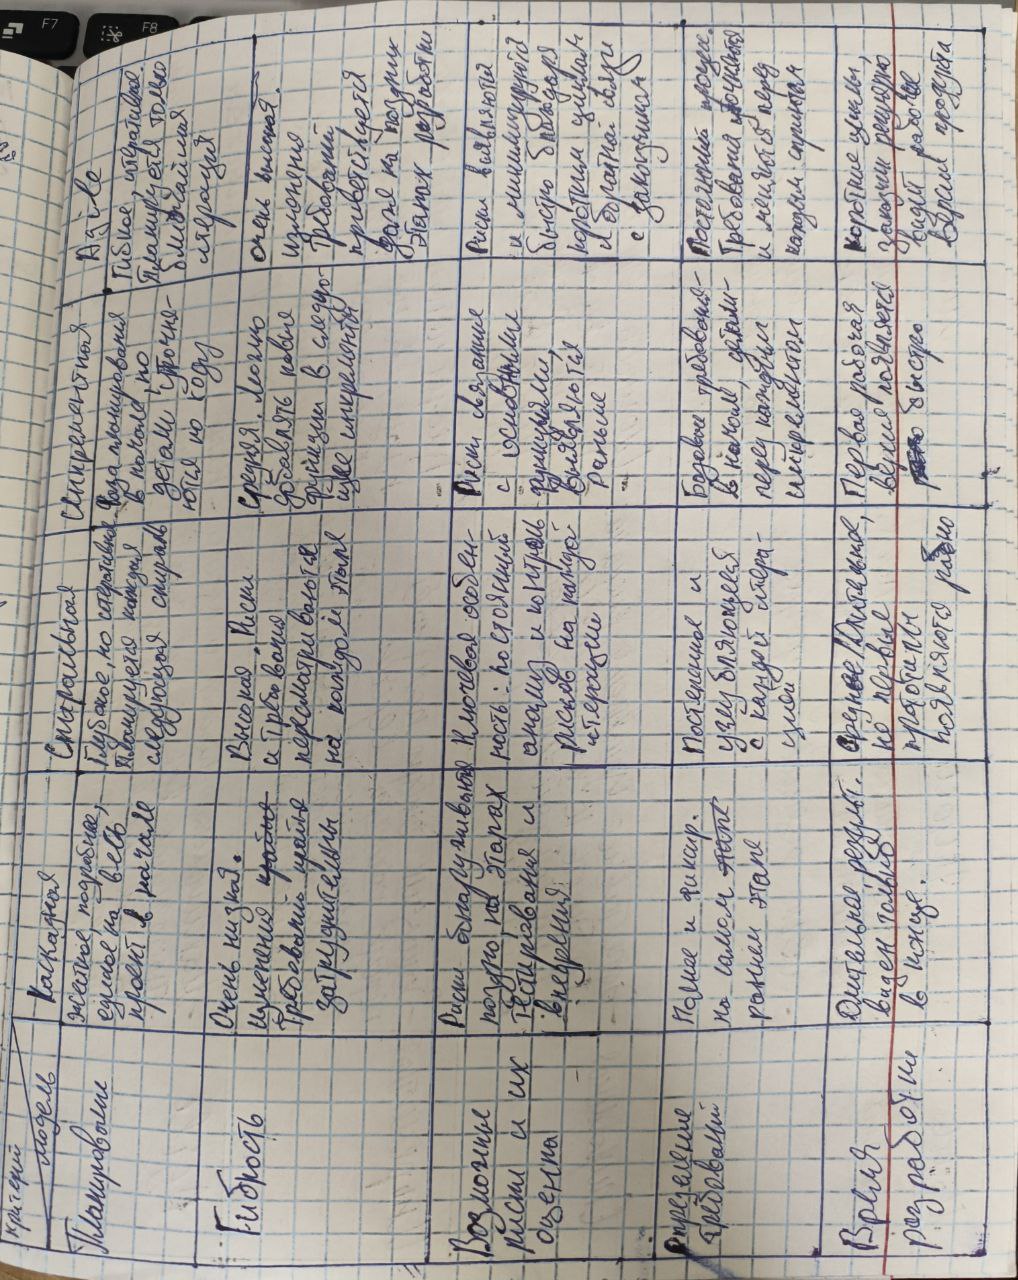 F7
F8
критерий
модель
Каскадная
Спиральная
Инкрементная
Agile
Планирование
жесткое, подробное,
на весь
проект в начале
Глубокое, но итеративное.
Планируется каждая
следующая спираль
Фаза планирования
в начале, но
детали уточня-
ются по ходу
Гибкое, итеративное.
Планируется только
ближайшая
итерация
Гибкость
Очень низкая.
Изменения
требований крайне
затруднительны
Высокая. Риски
и требования
пересматриваются
на каждом этапе
Средняя. Можно
добавлять новые
функции в следую-
щие инкременты
очень высокая.
изменения
требований
приветствуется
даже на поздних
этапах разработки
Возможные
риски и их
оценка
Риски обнаруживаются
поздно, на этапах
тестирования и
внедрения
Ключевая особен-
ность: постоянный
анализ и контроль
рисков на каждой
итерации
Риски связанные
с основными
функциями,
выявляются
раньше
Риски выявляются
и минимизируются
быстро благодаря
коротким циклам
и обратной связи
с заказчиком
Определение
требований
Полное и фикир.
на самом
раннем этапе
Постепенное и
углубляющееся
с каждой итера-
цией
Базовые требования-
в начале, детали-
перед каждым
инкрементом
Постоянный процесс.
Требования
и меняются перед
каждым спринтом
Время
разработки
Длительное, результ.
виден только
в конце.
Длительное,
но первые
прототипы
появляются рано
Первая рабочая
версия появляется
быстро
Короткие циклы,
заказчик регулярно
видит рабочие
версии продукта